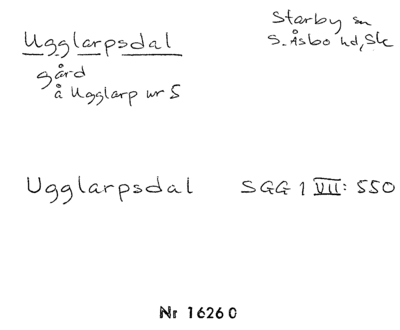 Ugglarpsdal
Starby sn
S. Åsbo hd, Sk
gård
å Ugglarp nr 5
Ugglarpsdal SGG 1 VII: 550
Nr 16260